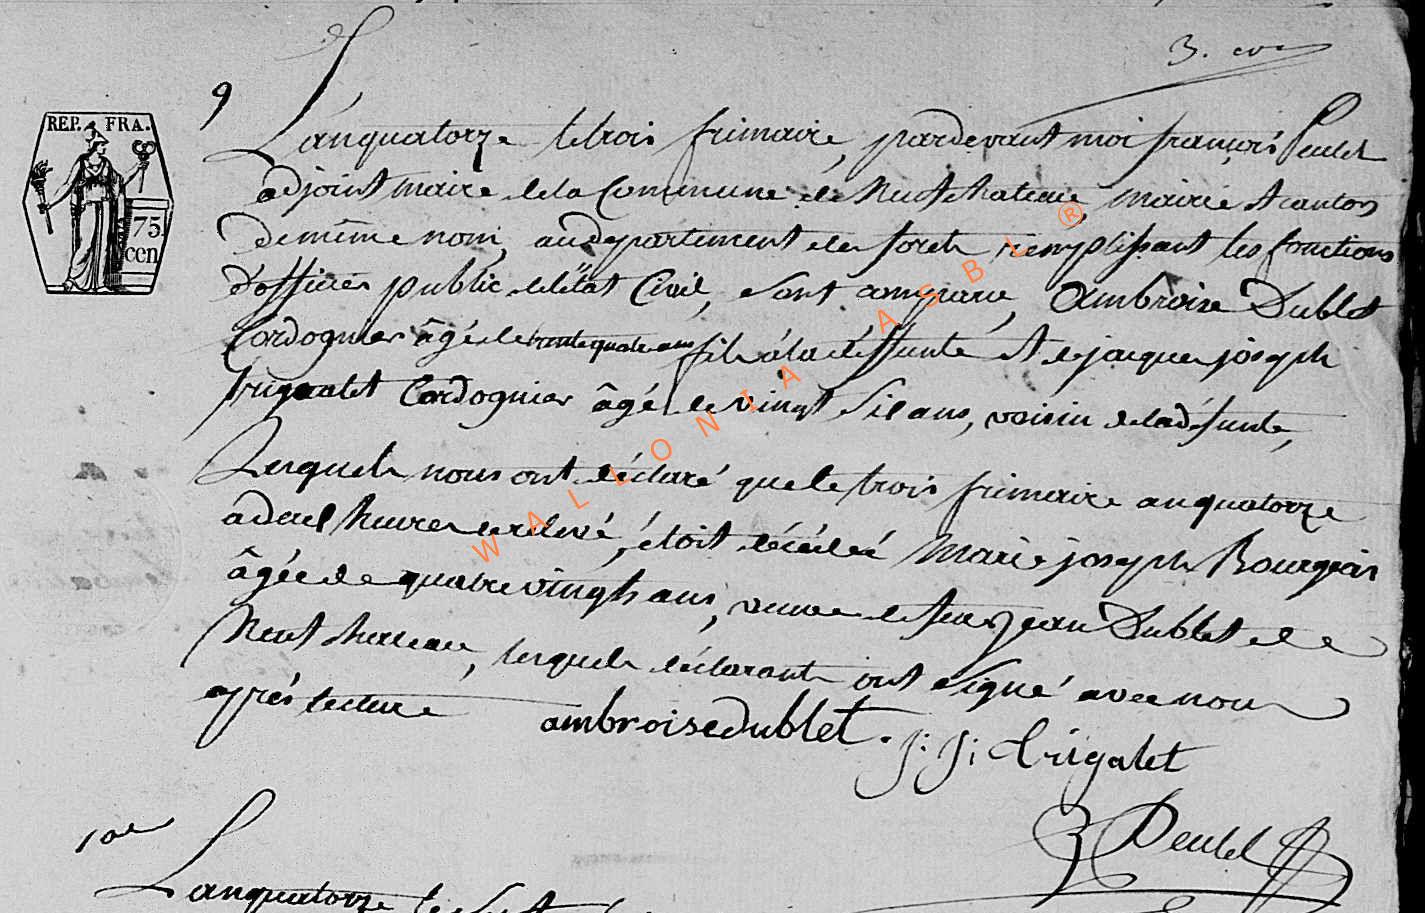 9
REP. FRA.
75.
cen
L'an quatorze le trois frimaire, pardevant moi françois
adjoint maire de la Commune de Neufchateau, mairie et canton
de même nom, au département des forets remplissant les fonctions
d'officier public de l'état Civil, sont comparu, Ambroise Dublet
Cordognier âgé de trente quatre ans fils à la deffunte et de jacque joseph
Trigalet Cordognier âgé de vingt six ans, voisin de la défunte,
Lesquels nous ont déclaré que le trois frimaire an quatorze
a deux heures de relevé, étoit décédée Marie joseph Bourgeois
âgée de quatre vingts ans, veuve de feu jean Dublet de
Neufchateau, lesquels déclarants ont signé avec nous
après lecture ambroise dublet. j: j: trigalet
10e
L'an quatorze le
WALLONIA ASBL ®